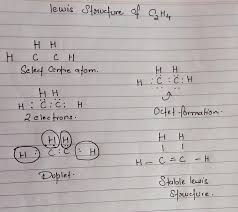 lewis Structure of C₂H₄
H H
H C C H
Select Centre atom.
H H
H : C : C : H
2 electrons.
H H
H : C : C : H
Octet formation.
H H
H C : C : H
Duplet.
H H
H - C = C - H
Stable lewis
Structure.